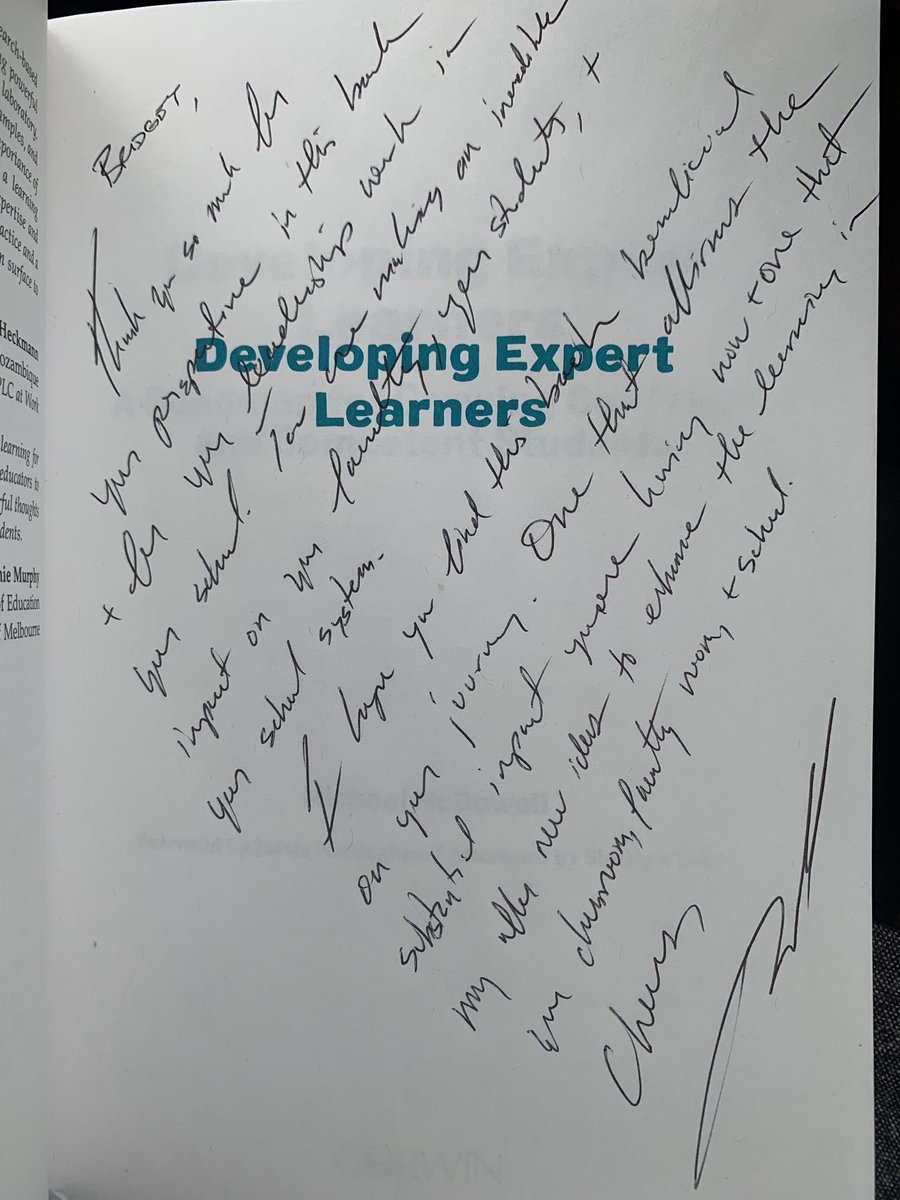 earch-based
g powerful
laboratory,
amples, and
portance of
a learning
pertise and
actice and a
n surface to
Heckmann
ozambique
PLC at Work
learning for
educators to
ful thoughts
dents.
nie Murphy
of Education
f Melbourne
Developing Expert
Learners
Thank you so much for
your perspective in this book
+ for your leadership work in
your school. You are making an incredible
impact on your faculty, your students, +
your school system.
I hope you find this book beneficial
on your journey. One that affirms the
substantial impact you're having now + one that
may offer new ideas to enhance the learning in
your classroom, faculty room, + school.
Cheers,
CORWIN